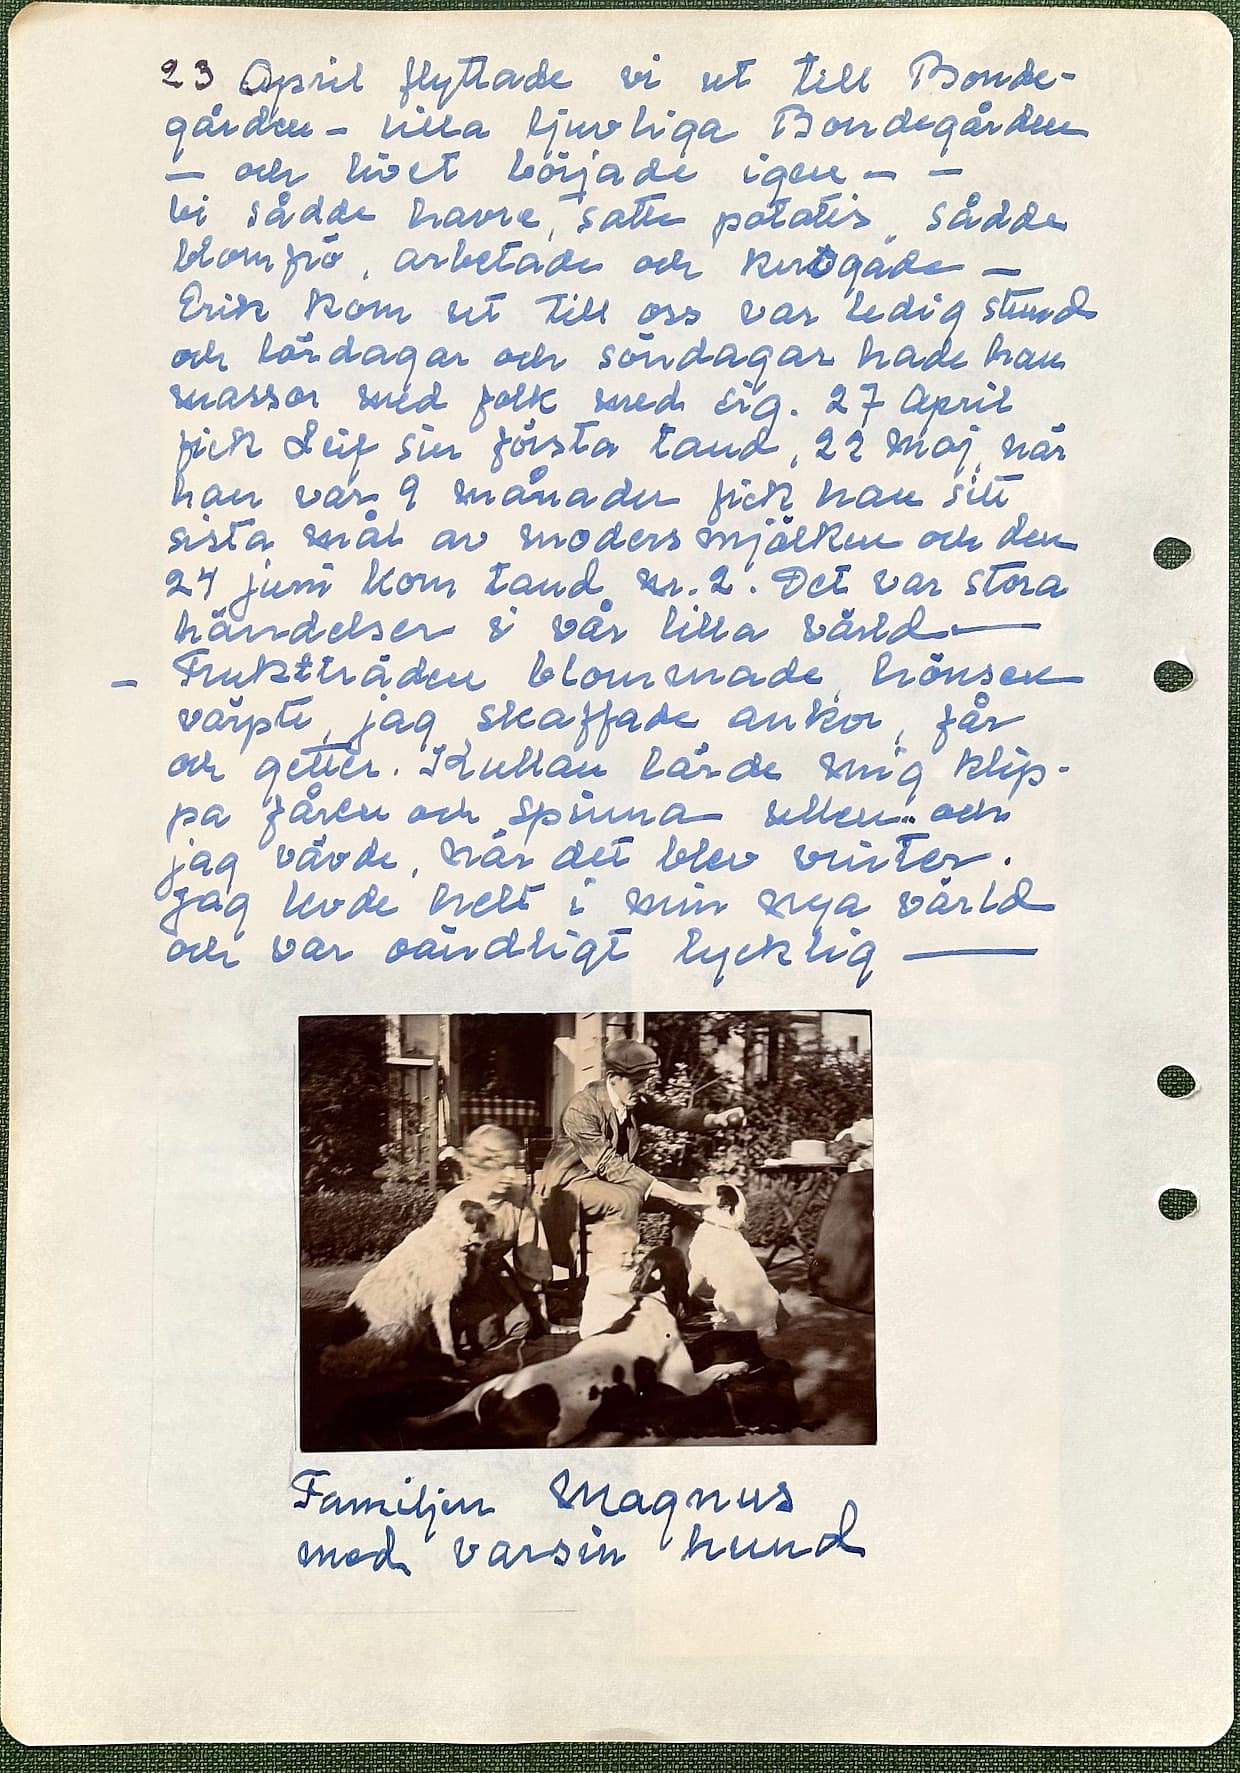 23 April flyttade vi ut till Bonde-
gården – lilla ljuvliga Bondegården
— och livet började igen — —
Vi sådde havre, satte potatis, sådde
blomfrö, arbetade och
Erik kom ut till oss var ledig stund
och lördagar och söndagar hade han
massor med folk med sig. 27 April
fick Leif sin första tand, 22 maj, när
han var 9 månader fick han sitt
sista mål av modersmjölken och den
24 juni kom tand nr. 2. Det var stora
händelser i vår lilla värld —
– Fruktträden blommade, hönsen
värpte, jag skaffade ankor, får
och getter. Kullan lärde mig klip-
pa fåren och spinna ullen och
jag vävde, när det blev vinter.
Jag levde helt i min nya värld
och var oändligt lycklig —
Familjen Magnus
med varsin hund